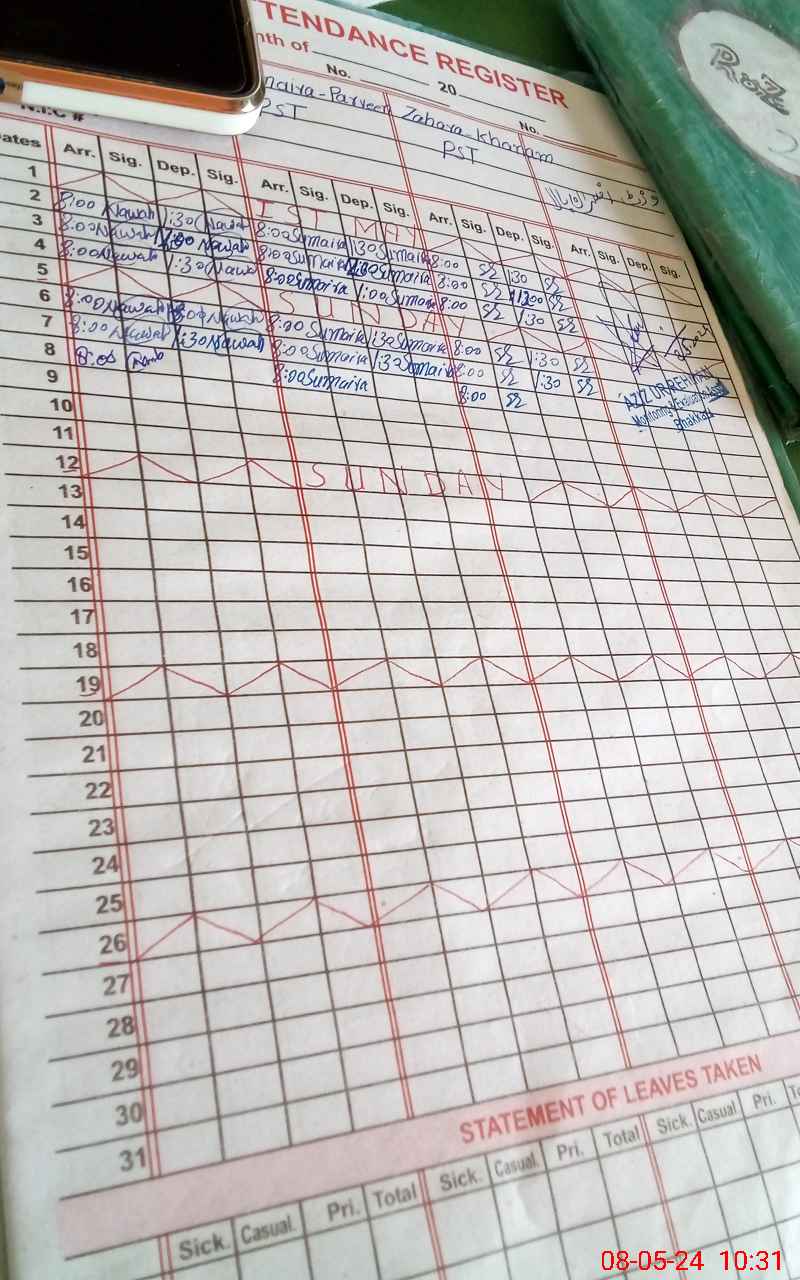 TTENDANCE REGISTER
nth of 20
No. No.
N.I.C #
maira-Parveen Zahara-khanam
PST PST
Dates Arr. Sig. Dep. Sig. Arr. Sig. Dep. Sig. Arr. Sig. Dep. Sig. Arr. Sig. Dep. Sig.
1 1ST MAY
2 8:00 Nawab 1:30 Nawab 8:00 Sumaira 1:30 Sumaira 8:00 1:30
3 8:00 Nawab Nawab 8:00 Sumaira Sumaira 8:00
4 8:00 Nawab 1:30 Nawab 8:00 Sumaira 1:00 Sumaira 8:00 1:30
5 SUNDAY
6 8:00 Nawab Nawab 8:00 Sumaira 1:30 Sumaira 8:00 1:30
7 8:00 Nawab 1:30 Nawab 8:00 Sumaira 1:30 Sumaira 8:00 1:30
8 8:00 8:00 Sumaira 8:00
9
10
11
12 SUNDAY
13
14
15
16
17
18
19
20
21
22
23
24
25
26
27
28
29
30
31
AZIZ UR REHMAN
Monitoring & Evaluation
Bhakkar
STATEMENT OF LEAVES TAKEN
Sick. Casual. Pri. Total Sick. Casual. Pri. Total Sick. Casual. Pri.
08-05-24 10:31